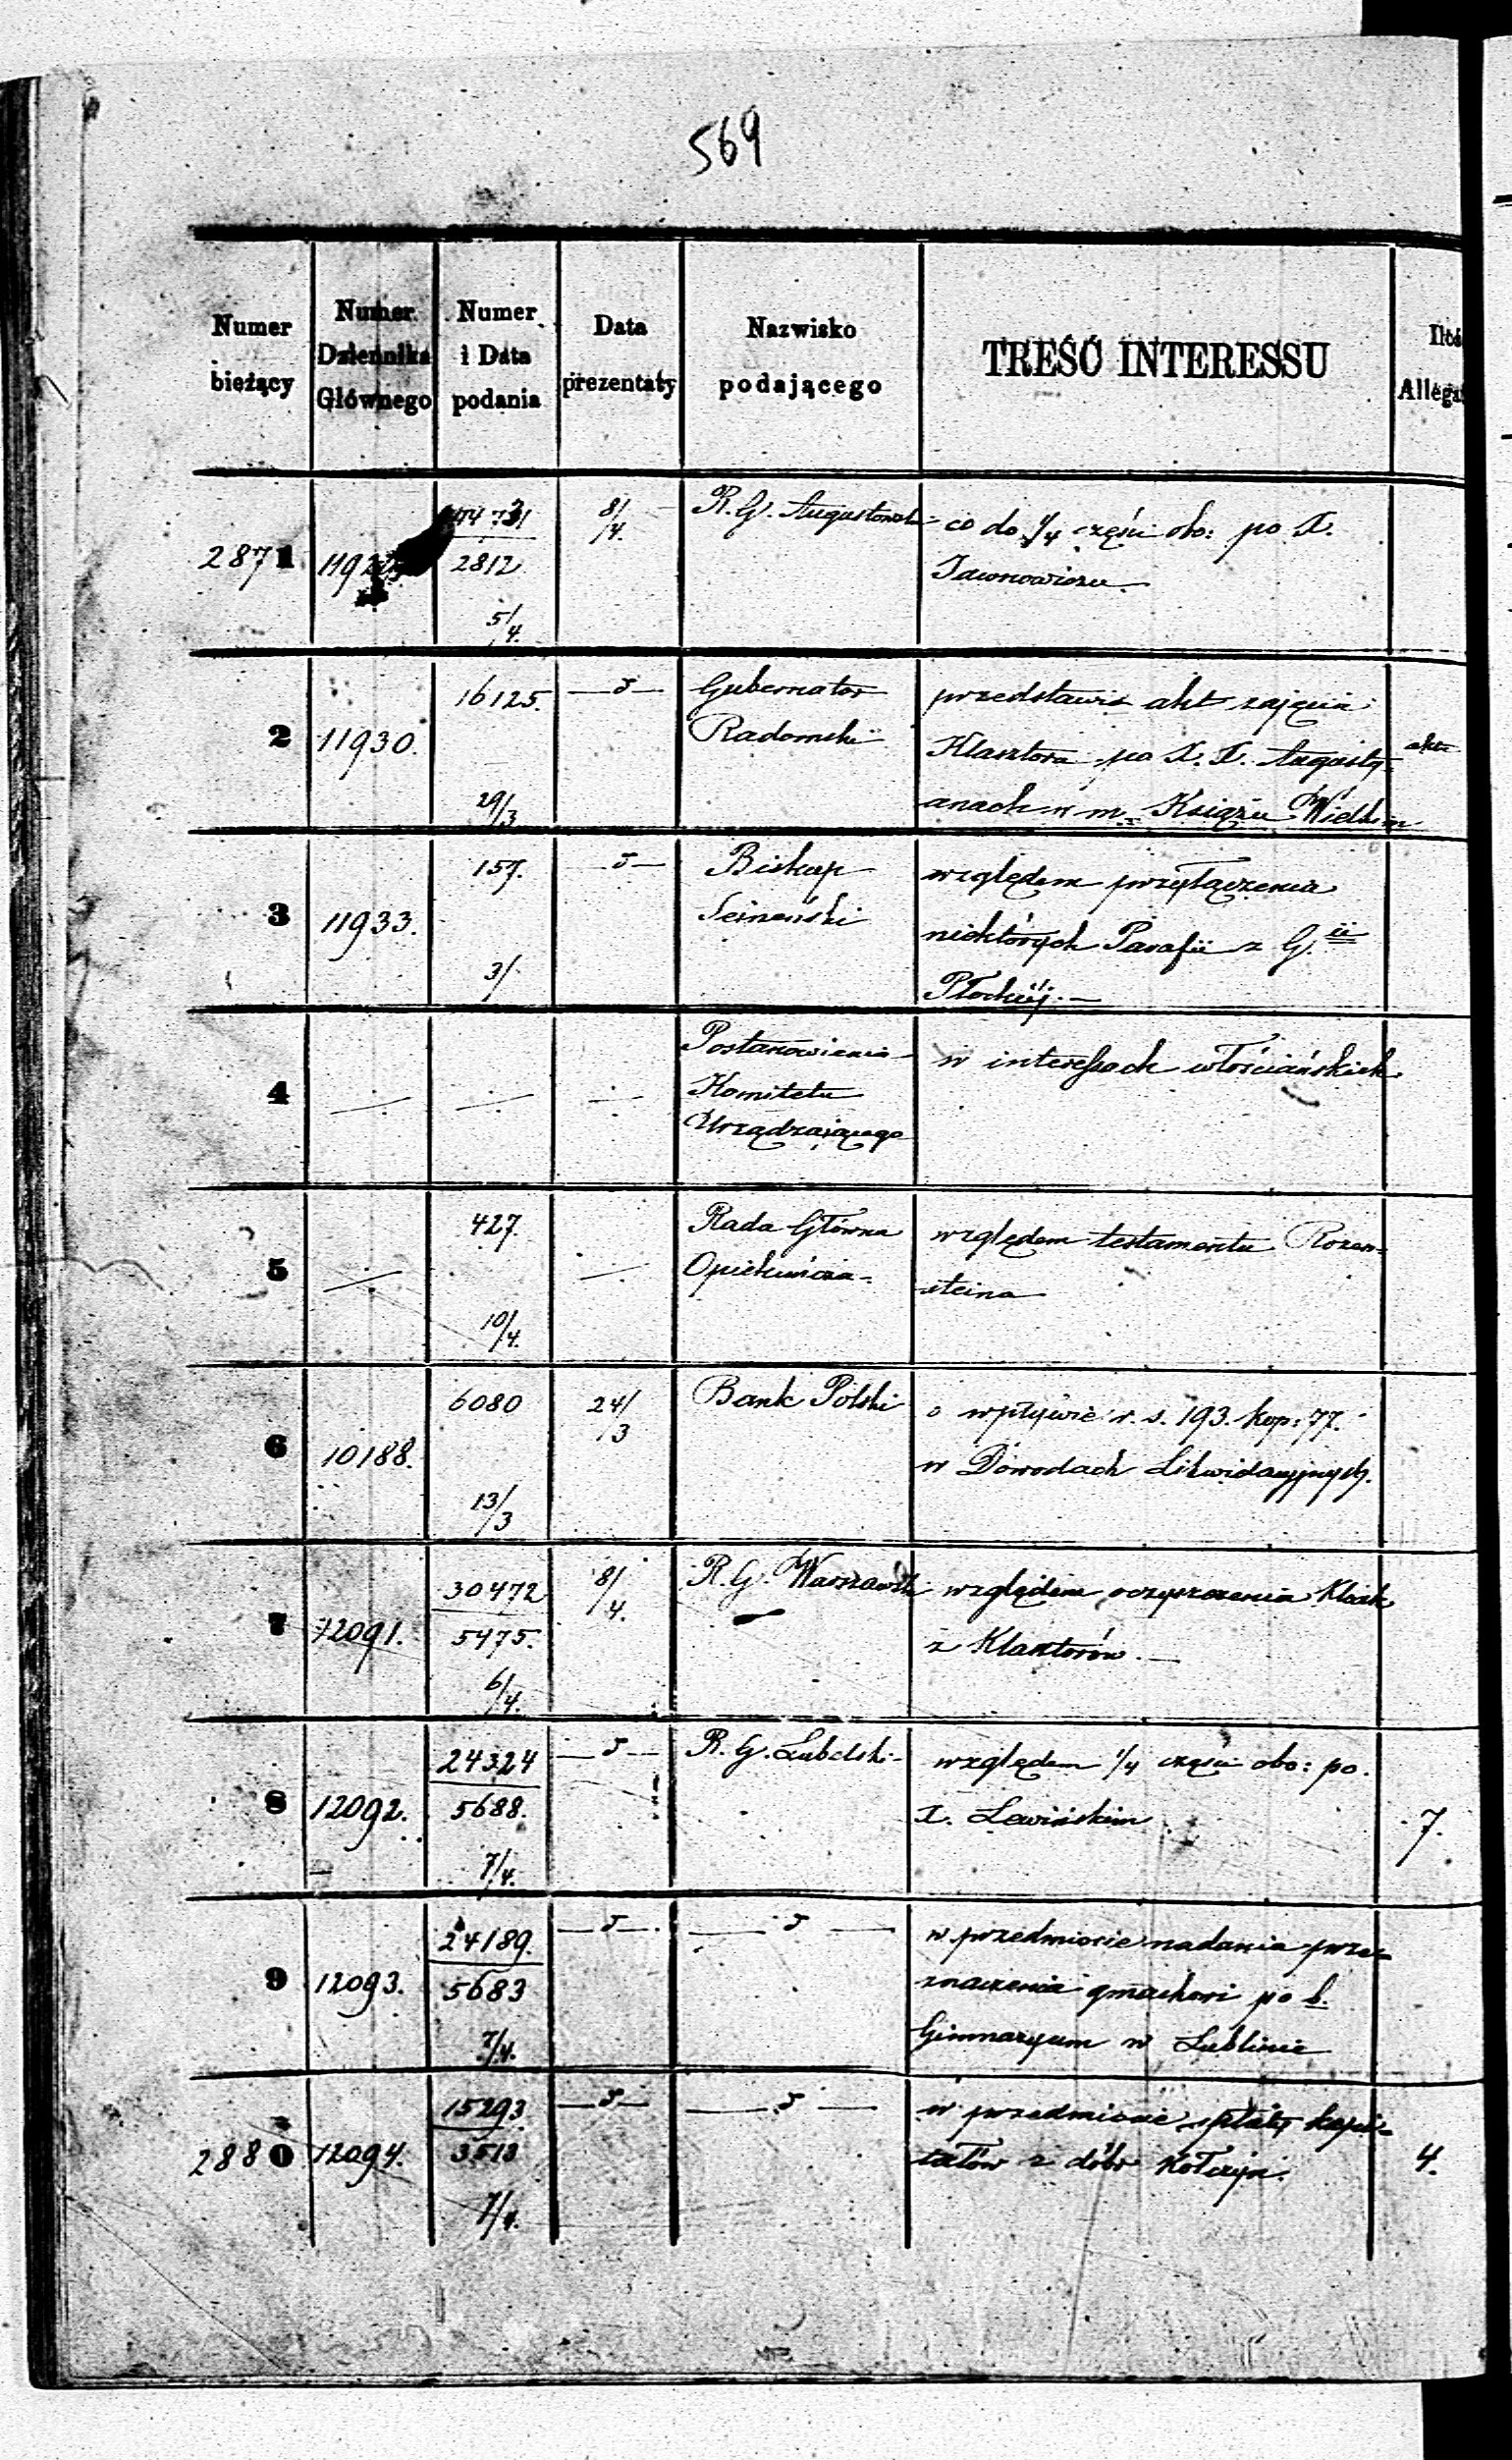 569
Numer bieżący
Numer Dziennika Głównego
Numer i Data podania
Data prezentaty
Nazwisko podającego
TREŚĆ INTERESSU
2871
2812
5/4.
8/4.
R. G. Augustowski
co do 1/4 części obo: po X.
2
11930.
16125.
29/3
Gubernator
Radomski
przedstawia akt zajęcia
Klasztora po X. X. Augusty-
anach w m. Książu Wielkim
3
11933.
157.
3/
Biskup
Sejneński
względem przyłączenia
niektórych Parafii z G.ii
Płockiéj.—
4
Postanowienia
Komitetu
Urządzającego
w interessach włościańskich
5
427.
10/4.
Rada Główna
Opiekuńcza
względem testamentu Rozen-
steina
6
10188.
6080
13/3
24/3
Bank Polski
o wpływie r. s. 193. kop: 77.
w Dowodach Likwidacyjnych.
7
12091.
30472
5475.
6/4.
8/4.
R. G. Warszawski
względem oczyszczenia Kloak
z Klasztorów.—
8
12092.
24324
5688.
7/4.
R. G. Lubelski
względem 1/4 części obo: po.
X. Lewińskim
7.
9
12093.
24189.
5683
7/4.
w przedmiocie nadania prze-
znaczenia gmachowi po b.
Gimnazyum w Lublinie
2880
12094.
15293
3513
7/4.
w przedmiocie spłaty kapi-
tałów z dóbr Kołczyn.
4.